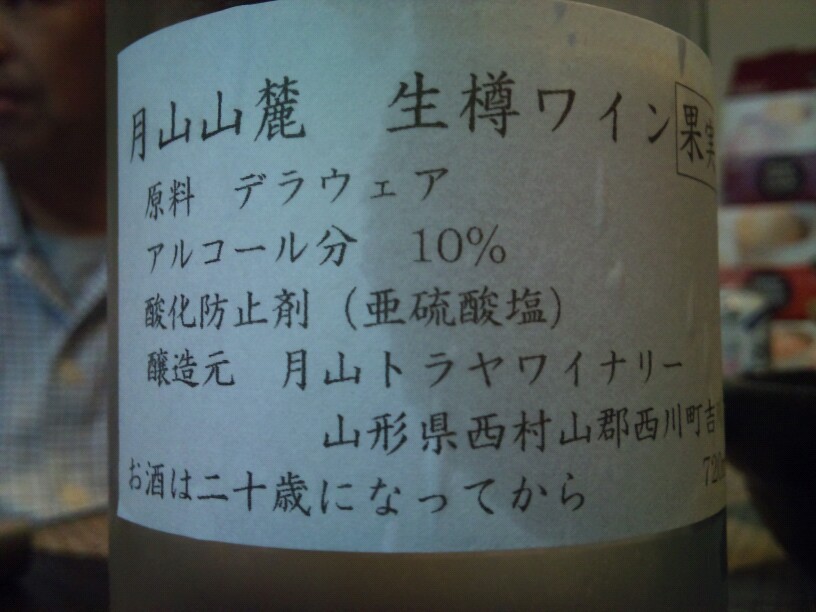 月山山麓　生樽ワイン 果実
原料　デラウェア
アルコール分　10%
酸化防止剤（亜硫酸塩）
醸造元　月山トラヤワイナリー
山形県西村山郡西川町吉
720
お酒は二十歳になってから